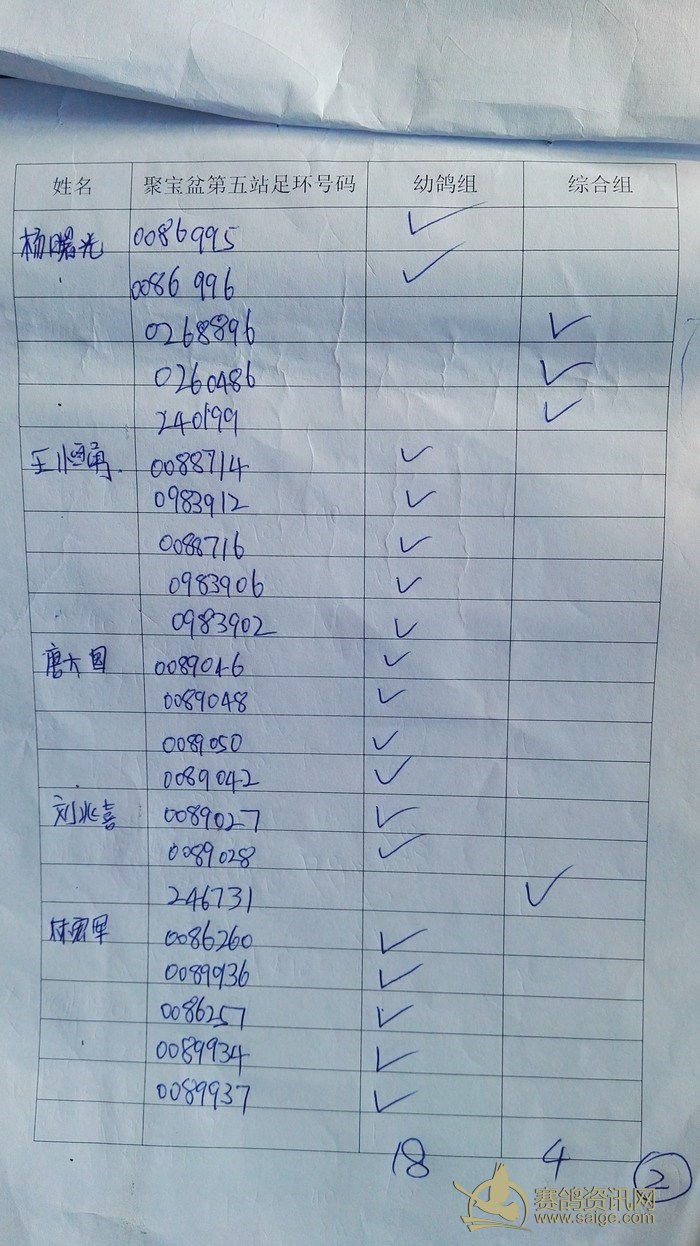 姓名 聚宝盆第五站足环号码 幼鸽组 综合组
杨曙光 0086995 ✓
0086996 ✓
0268896 ✓
0260486 ✓
240199 ✓
王恒勇 0088714 ✓
0983912 ✓
0088716 ✓
0983906 ✓
0983902 ✓
唐大国 0089046 ✓
0089048 ✓
0089050 ✓
0089042 ✓
刘兆喜 0089027 ✓
0089028 ✓
246731 ✓
0086260 ✓
0089936 ✓
0086257 ✓
0089934 ✓
0089937 ✓
18 4 2
赛鸽资讯网
www.saige.com